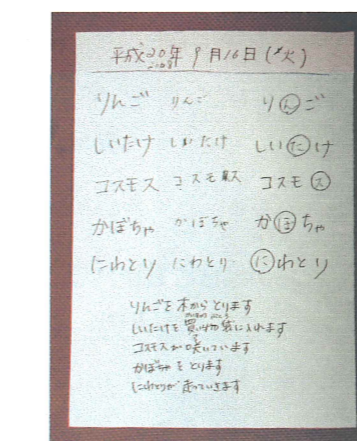 平成20年 9月16日(火)
りんご りんご りんご
しいたけ しいたけ しいたけ
コスモス コスモス コスモス
かぼちゃ かぼちゃ かぼちゃ
にわとり にわとり にわとり
りんごを木からとります
しいたけを買い物袋に入れます
コスモスが咲いています
かぼちゃをとります
にわとりが走っていきます